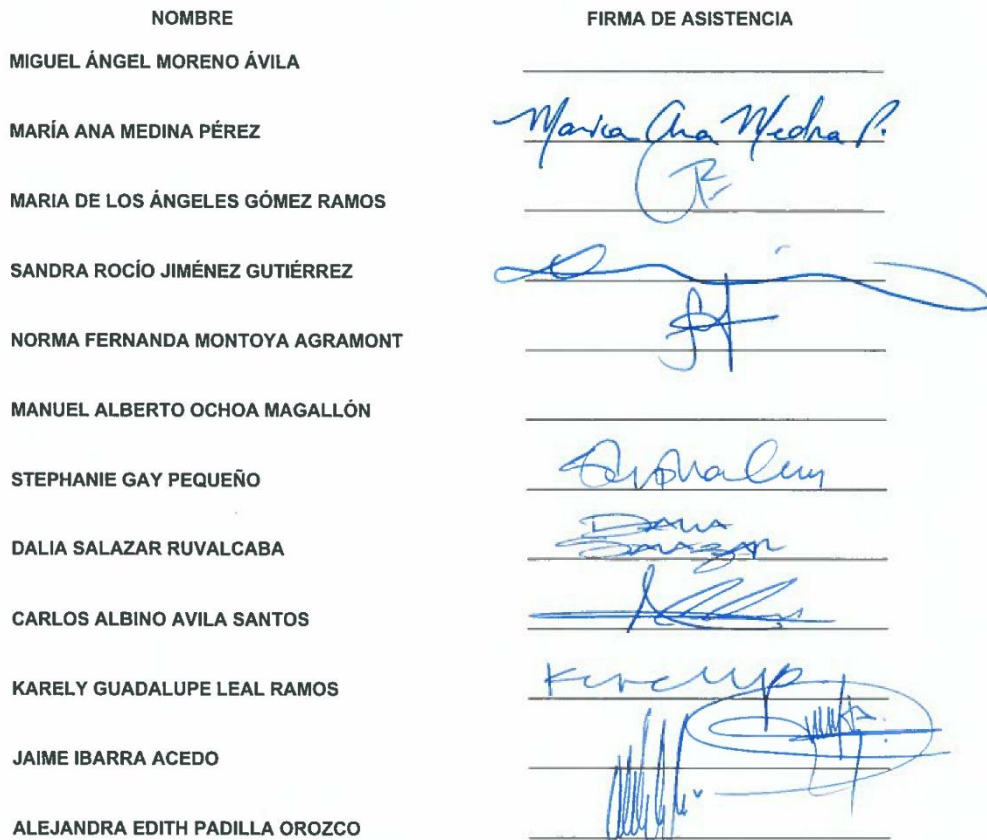 NOMBRE FIRMA DE ASISTENCIA
MIGUEL ÁNGEL MORENO ÁVILA
MARÍA ANA MEDINA PÉREZ Maria Ana Medina P.
MARIA DE LOS ÁNGELES GÓMEZ RAMOS
SANDRA ROCÍO JIMÉNEZ GUTIÉRREZ
NORMA FERNANDA MONTOYA AGRAMONT
MANUEL ALBERTO OCHOA MAGALLÓN
STEPHANIE GAY PEQUEÑO
DALIA SALAZAR RUVALCABA DALIA SALAZAR
CARLOS ALBINO AVILA SANTOS
KARELY GUADALUPE LEAL RAMOS
JAIME IBARRA ACEDO
ALEJANDRA EDITH PADILLA OROZCO